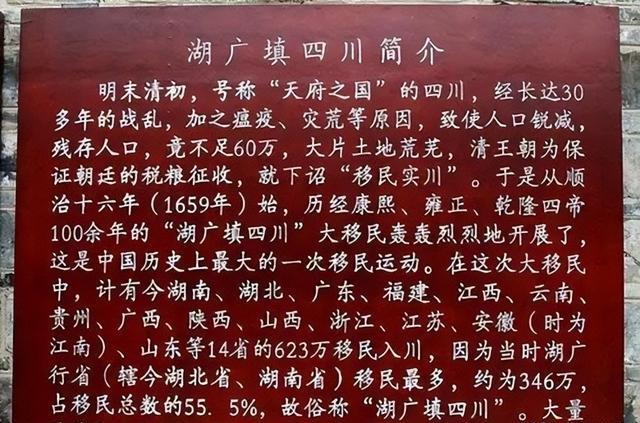 湖广填四川简介
明末清初，号称“天府之国”的四川，经长达30
多年的战乱，加之瘟疫、灾荒等原因，致使人口锐减，
残存人口，竟不足60万，大片土地荒芜，清王朝为保
证朝廷的税粮征收，就下诏“移民实川”。于是从顺
治十六年（1659年）始，历经康熙、雍正、乾隆四帝
100余年的“湖广填四川”大移民轰轰烈烈地开展了，
这是中国历史上最大的一次移民运动。在这次大移民
中，计有今湖南、湖北、广东、福建、江西、云南、
贵州、广西、陕西、山西、浙江、江苏、安徽（时为
江南）、山东等14省的623万移民入川，因为当时湖广
行省（辖今湖北省、湖南省）移民最多，约为346万，
占移民总数的55.5%，故俗称“湖广填四川”。大量